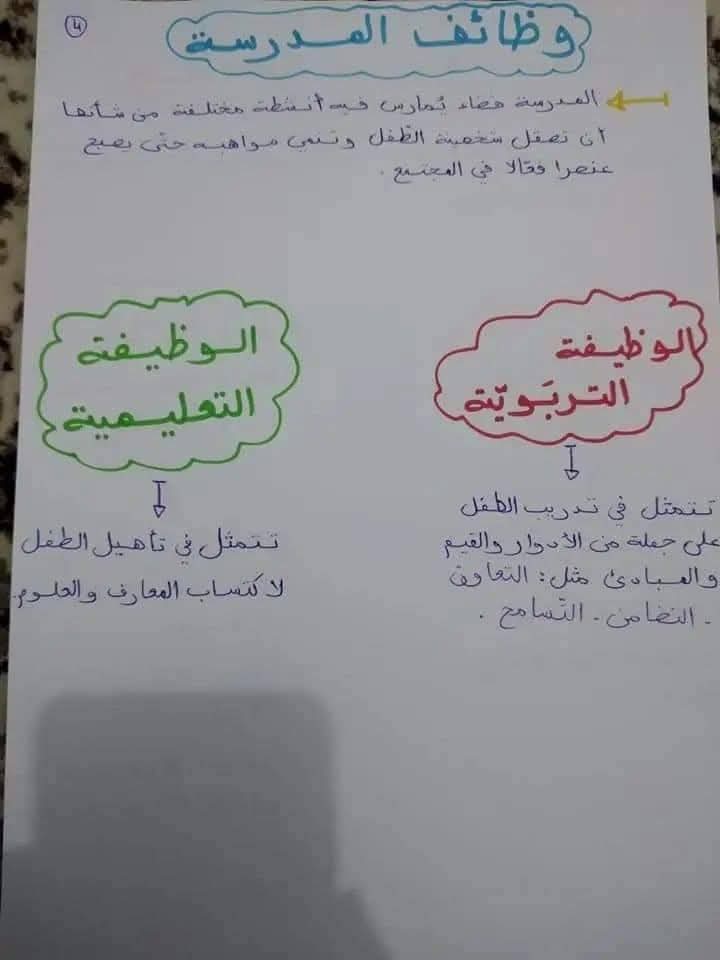 4
وظائف المدرسة
المدرسة فضاء يُمارس فيه أنشطة مختلفة من شأنها
أن تصقل شخصية الطّفل وتنمي مواهبه حتّى يصبح
عنصرا فعّالا في المجتمع .
الوظيفة
التربَويّة
تتمثل في تدريب الطفل
على جملة من الأدوار والقيم
والمبادئ مثل : التعاون
. التضامن . التّسامح .
الوظيفة
التعليمية
تتمثل في تأهيل الطفل
لاكتساب المعارف والعلوم.